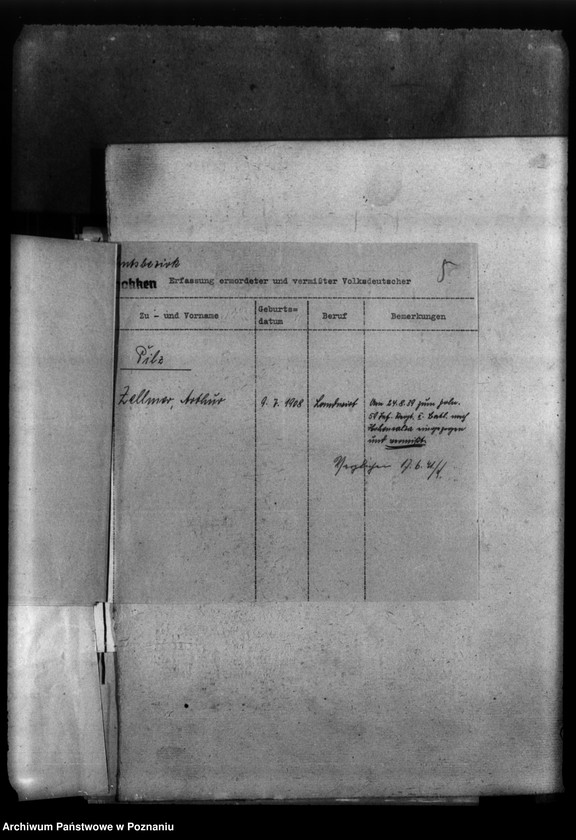 Amtsbezirk
chken Erfassung ermordeter und vermißter Volksdeutscher
5
Zu - und Vorname
Geburts=
datum
Beruf
Bemerkungen
Pilz
Zellmer, Arthur
9. 7. 1908
Landwirt
Am 24.8.39 zum poln.
59 Inf. Regt. I. Batl. nach
Hohensalza eingezogen
und vermißt.
Verglichen 17. 6. 41
Archiwum Państwowe w Poznaniu